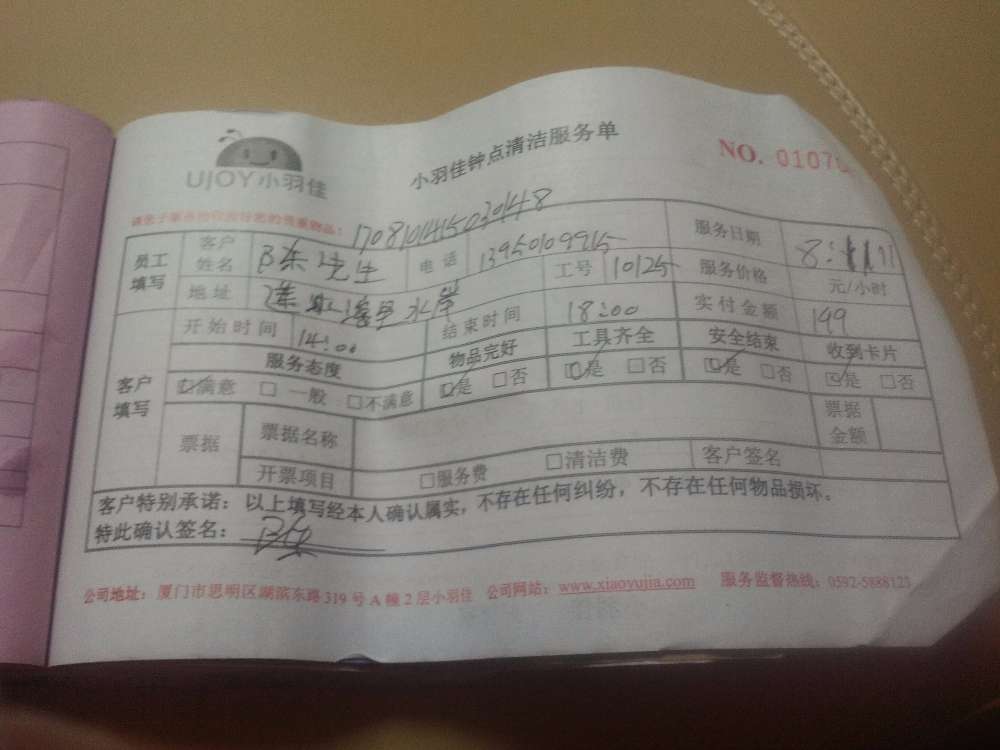 UJOY小羽佳
小羽佳钟点清洁服务单
NO. 01070
1708101415030148
员工填写 客户姓名 陈先生 电话 13950109915 服务日期
地址 工号 10125 服务价格 元/小时
客户填写 开始时间 14:00 结束时间 18:00 实付金额 199
服务态度 物品完好 工具齐全 安全结束 收到卡片
☑满意 □一般 □不满意 ☑是 □否 ☑是 □否 ☑是 □否 ☑是 □否
票据 票据名称 票据金额
开票项目 □服务费 □清洁费 客户签名
客户特别承诺：以上填写经本人确认属实，不存在任何纠纷，不存在任何物品损坏。
特此确认签名：陈
公司地址：厦门市思明区湖滨东路319号A幢2层小羽佳 公司网站：www.xiaoyujia.com 服务监督热线：0592-5888123